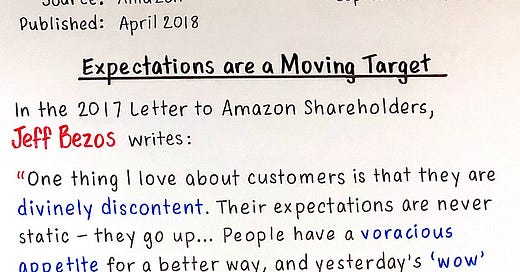 Source: Amazon
Published: April 2018
Expectations are a Moving Target
In the 2017 Letter to Amazon Shareholders,
Jeff Bezos writes:
"One thing I love about customers is that they are
divinely discontent. Their expectations are never
static – they go up... People have a voracious
appetite for a better way, and yesterday's 'wow'